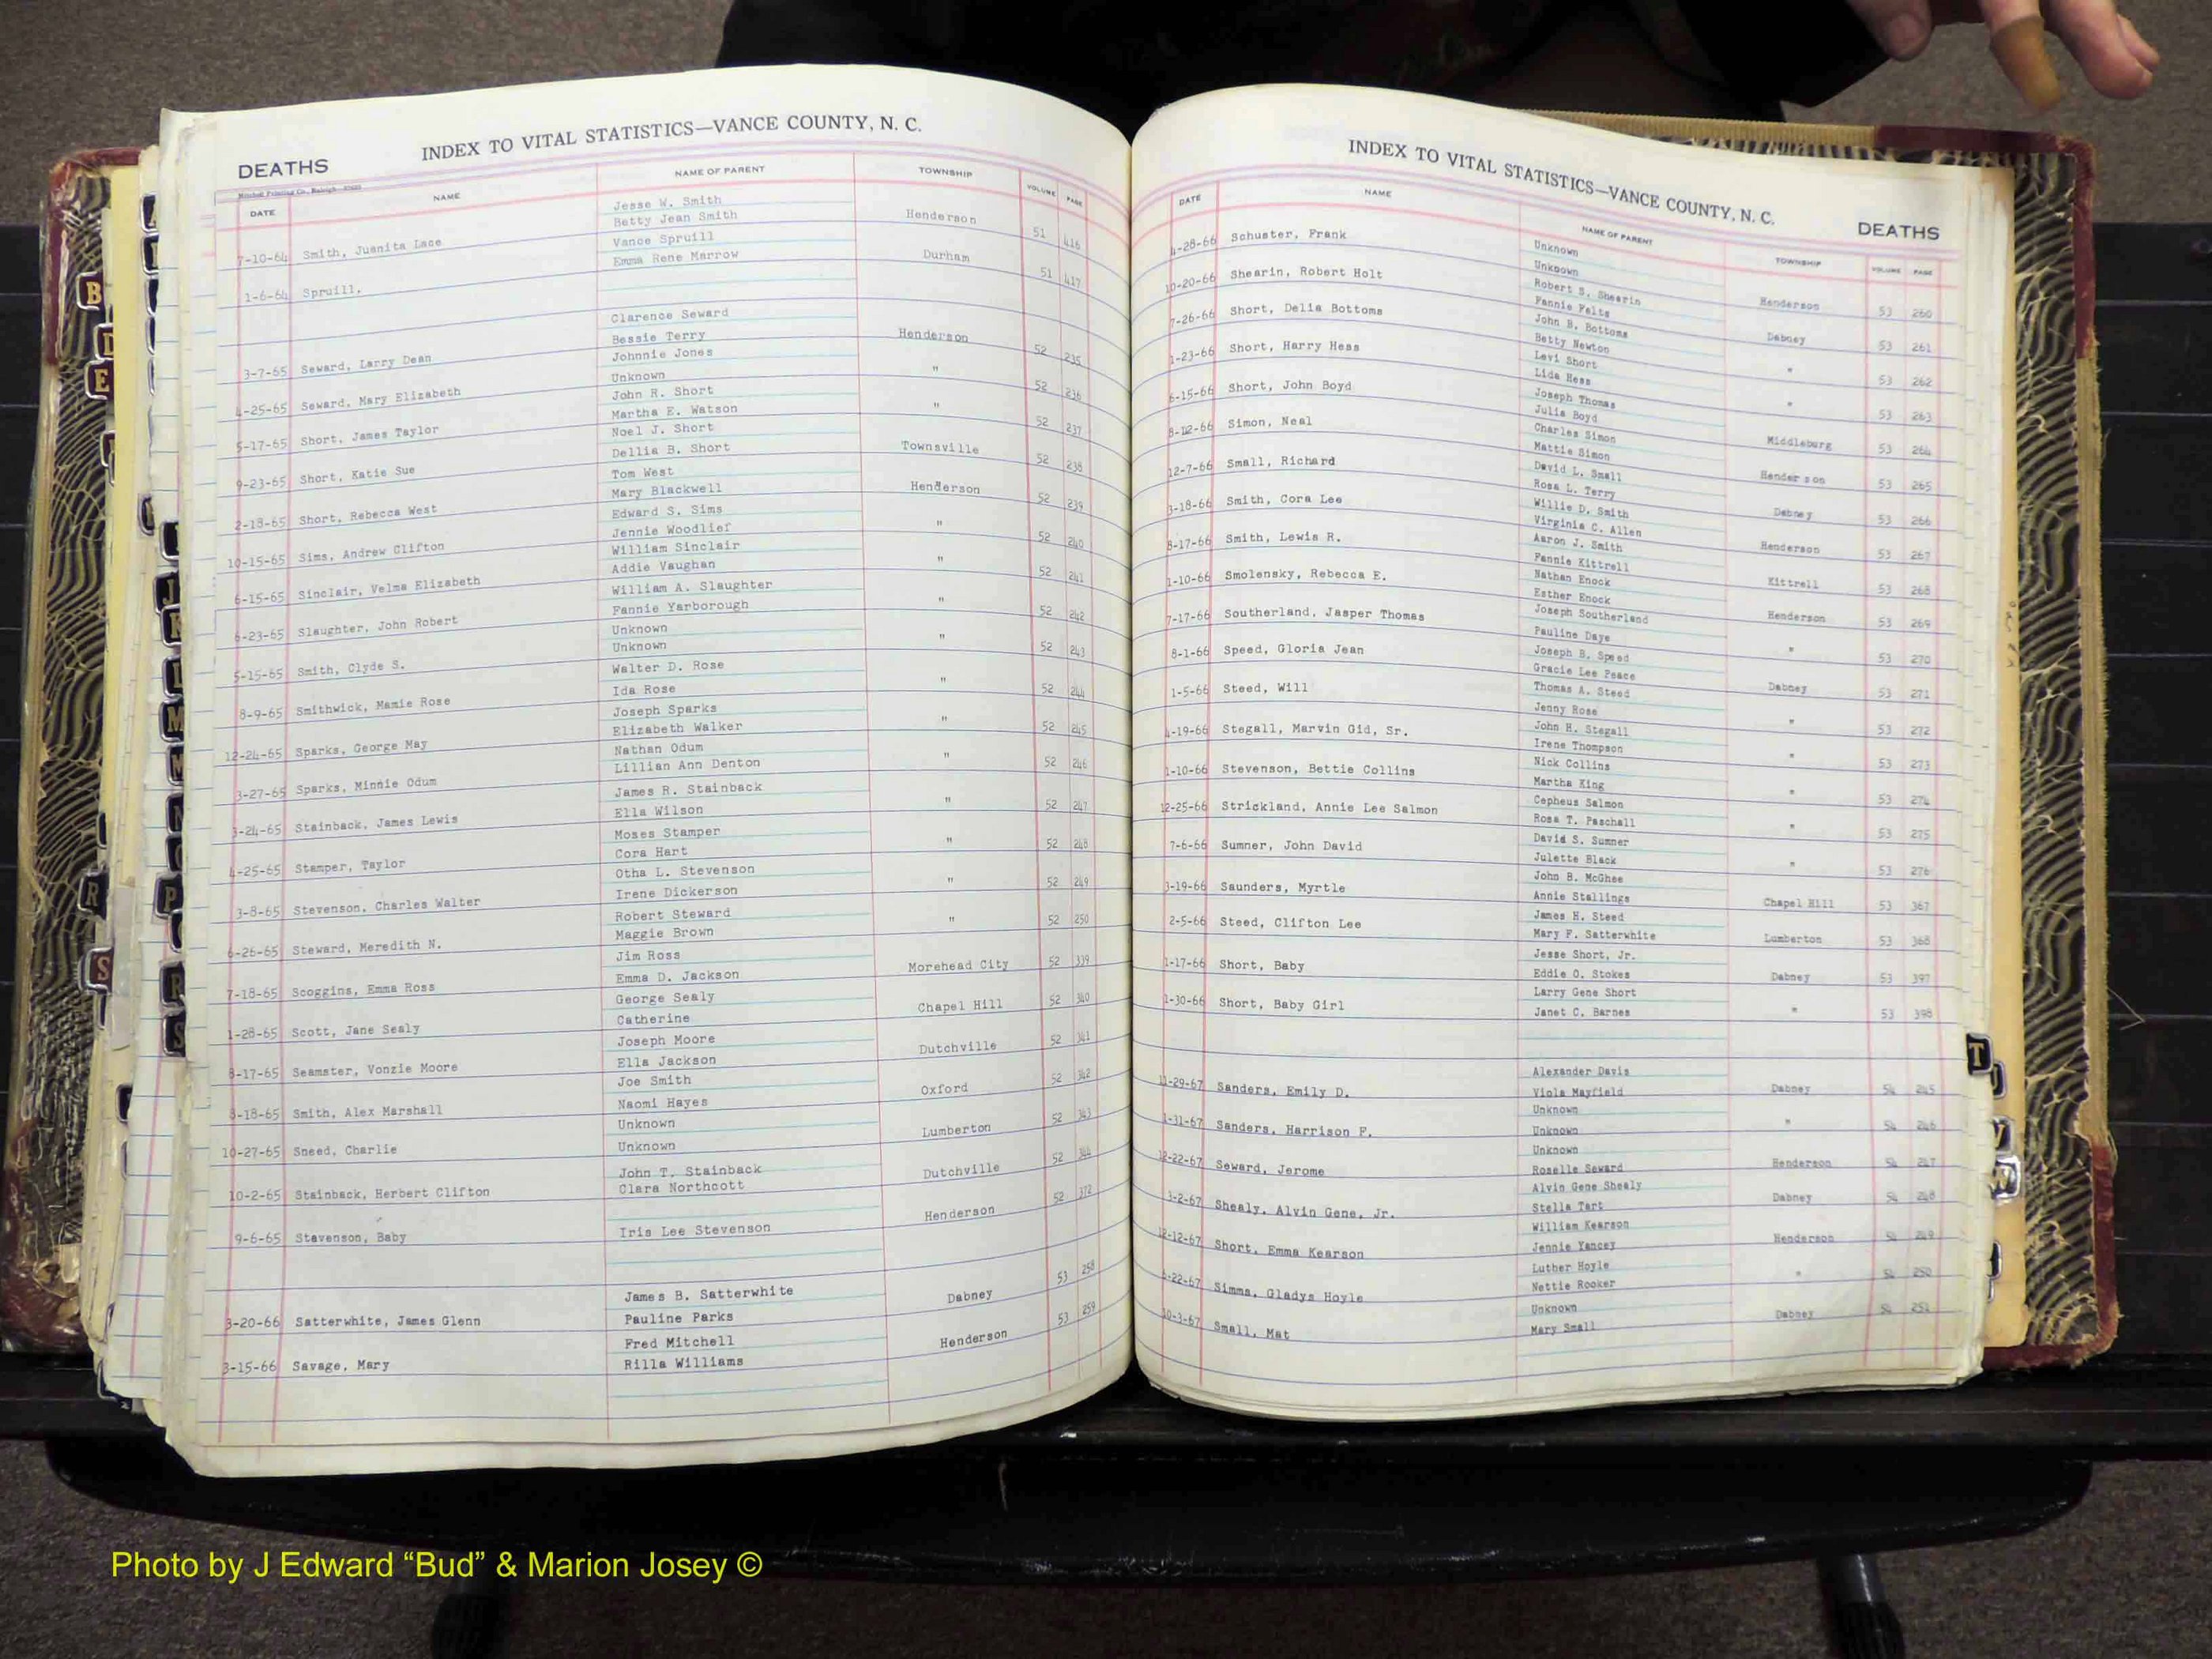 DEATHS
INDEX TO VITAL STATISTICS—VANCE COUNTY, N. C.
Mitchell Printing Co., Raleigh
DATE NAME NAME OF PARENT TOWNSHIP VOLUME PAGE
Jesse W. Smith
7-10-64 Smith, Juanita Lace Betty Jean Smith Henderson 51 416
Vance Spruill
1-6-64 Spruill, Emma Rene Marrow Durham 51 417
Clarence Seward
3-7-65 Seward, Larry Dean Bessie Terry Henderson 52 235
Johnnie Jones
4-25-65 Seward, Mary Elizabeth Unknown " 52 236
John R. Short
5-17-65 Short, James Taylor Martha E. Watson " 52 237
Noel J. Short
9-23-65 Short, Katie Sue Dellia B. Short Townsville 52 238
Tom West
2-18-65 Short, Rebecca West Mary Blackwell Henderson 52 239
Edward S. Sims
10-15-65 Sims, Andrew Clifton Jennie Woodlief " 52 240
William Sinclair
6-15-65 Sinclair, Velma Elizabeth Addie Vaughan " 52 241
William A. Slaughter
6-23-65 Slaughter, John Robert Fannie Yarborough " 52 242
Unknown
5-15-65 Smith, Clyde S. Unknown " 52 243
Walter D. Rose
8-9-65 Smithwick, Mamie Rose Ida Rose " 52 244
Joseph Sparks
12-24-65 Sparks, George May Elizabeth Walker " 52 245
Nathan Odum
3-27-65 Sparks, Minnie Odum Lillian Ann Denton " 52 246
James R. Stainback
3-24-65 Stainback, James Lewis Ella Wilson " 52 247
Moses Stamper
4-25-65 Stamper, Taylor Cora Hart " 52 248
Otha L. Stevenson
3-8-65 Stevenson, Charles Walter Irene Dickerson " 52 249
Robert Steward
6-26-65 Steward, Meredith N. Maggie Brown " 52 250
Jim Ross
7-18-65 Scoggins, Emma Ross Emma D. Jackson Morehead City 52 339
George Sealy
1-28-65 Scott, Jane Sealy Catherine Chapel Hill 52 340
Joseph Moore
8-17-65 Seamster, Vonzie Moore Ella Jackson Dutchville 52 341
Joe Smith
8-18-65 Smith, Alex Marshall Naomi Hayes Oxford 52 342
Unknown
10-27-65 Sneed, Charlie Unknown Lumberton 52 343
John T. Stainback
10-2-65 Stainback, Herbert Clifton Clara Northcott Dutchville 52 344
9-6-65 Stevenson, Baby Iris Lee Stevenson Henderson 52 372
James B. Satterwhite
3-20-66 Satterwhite, James Glenn Pauline Parks Dabney 53 258
Fred Mitchell
3-15-66 Savage, Mary Rilla Williams Henderson 53 259
INDEX TO VITAL STATISTICS—VANCE COUNTY, N. C.
DEATHS
DATE NAME NAME OF PARENT TOWNSHIP VOLUME PAGE
Unknown
4-28-66 Schuster, Frank Unknown Henderson 53 260
Robert S. Shearin
10-20-66 Shearin, Robert Holt Fannie Felts Dabney 53 261
John B. Bottoms
7-26-66 Short, Delia Bottoms Betty Newton " 53 262
Levi Short
1-23-66 Short, Harry Hess Lida Hess " 53 263
Joseph Thomas
6-15-66 Short, John Boyd Julia Boyd Middleburg 53 264
Charles Simon
8-12-66 Simon, Neal Mattie Simon Henderson 53 265
David L. Small
12-7-66 Small, Richard Rosa L. Terry Dabney 53 266
Willie D. Smith
3-18-66 Smith, Cora Lee Virginia C. Allen Henderson 53 267
Aaron J. Smith
8-17-66 Smith, Lewis R. Fannie Kittrell Kittrell 53 268
Nathan Enock
1-10-66 Smolensky, Rebecca E. Esther Enock Henderson 53 269
Joseph Southerland
7-17-66 Southerland, Jasper Thomas Pauline Daye " 53 270
Joseph B. Speed
8-1-66 Speed, Gloria Jean Gracie Lee Peace Dabney 53 271
Thomas A. Steed
1-5-66 Steed, Will Jenny Rose " 53 272
John H. Stegall
4-19-66 Stegall, Marvin Gid, Sr. Irene Thompson " 53 273
Nick Collins
1-10-66 Stevenson, Bettie Collins Martha King " 53 274
Cepheus Salmon
12-25-66 Strickland, Annie Lee Salmon Rosa T. Paschall " 53 275
David S. Sumner
7-6-66 Sumner, John David Julette Black " 53 276
John B. McGhee
3-19-66 Saunders, Myrtle Annie Stallings Chapel Hill 53 367
James H. Steed
2-5-66 Steed, Clifton Lee Mary F. Satterwhite Lumberton 53 368
Jesse Short, Jr.
1-17-66 Short, Baby Eddie O. Stokes Dabney 53 397
Larry Gene Short
1-30-66 Short, Baby Girl Janet C. Barnes " 53 398
Alexander Davis
11-29-67 Sanders, Emily D. Viola Mayfield Dabney 54 245
Unknown
1-31-67 Sanders, Harrison F. Unknown " 54 246
Unknown
12-22-67 Seward, Jerome Roselle Seward Henderson 54 247
Alvin Gene Shealy
3-2-67 Shealy, Alvin Gene, Jr. Stella Tart Dabney 54 248
William Kearson
12-12-67 Short, Emma Kearson Jennie Yancey Henderson 54 249
Luther Hoyle
6-22-67 Simms, Gladys Hoyle Nettie Rooker " 54 250
Unknown
10-3-67 Small, Mat Mary Small Dabney 54 251
B
D
E
R
S
J
K
L
M
N
O
P
R
S
T
V
W
Photo by J Edward “Bud” & Marion Josey ©